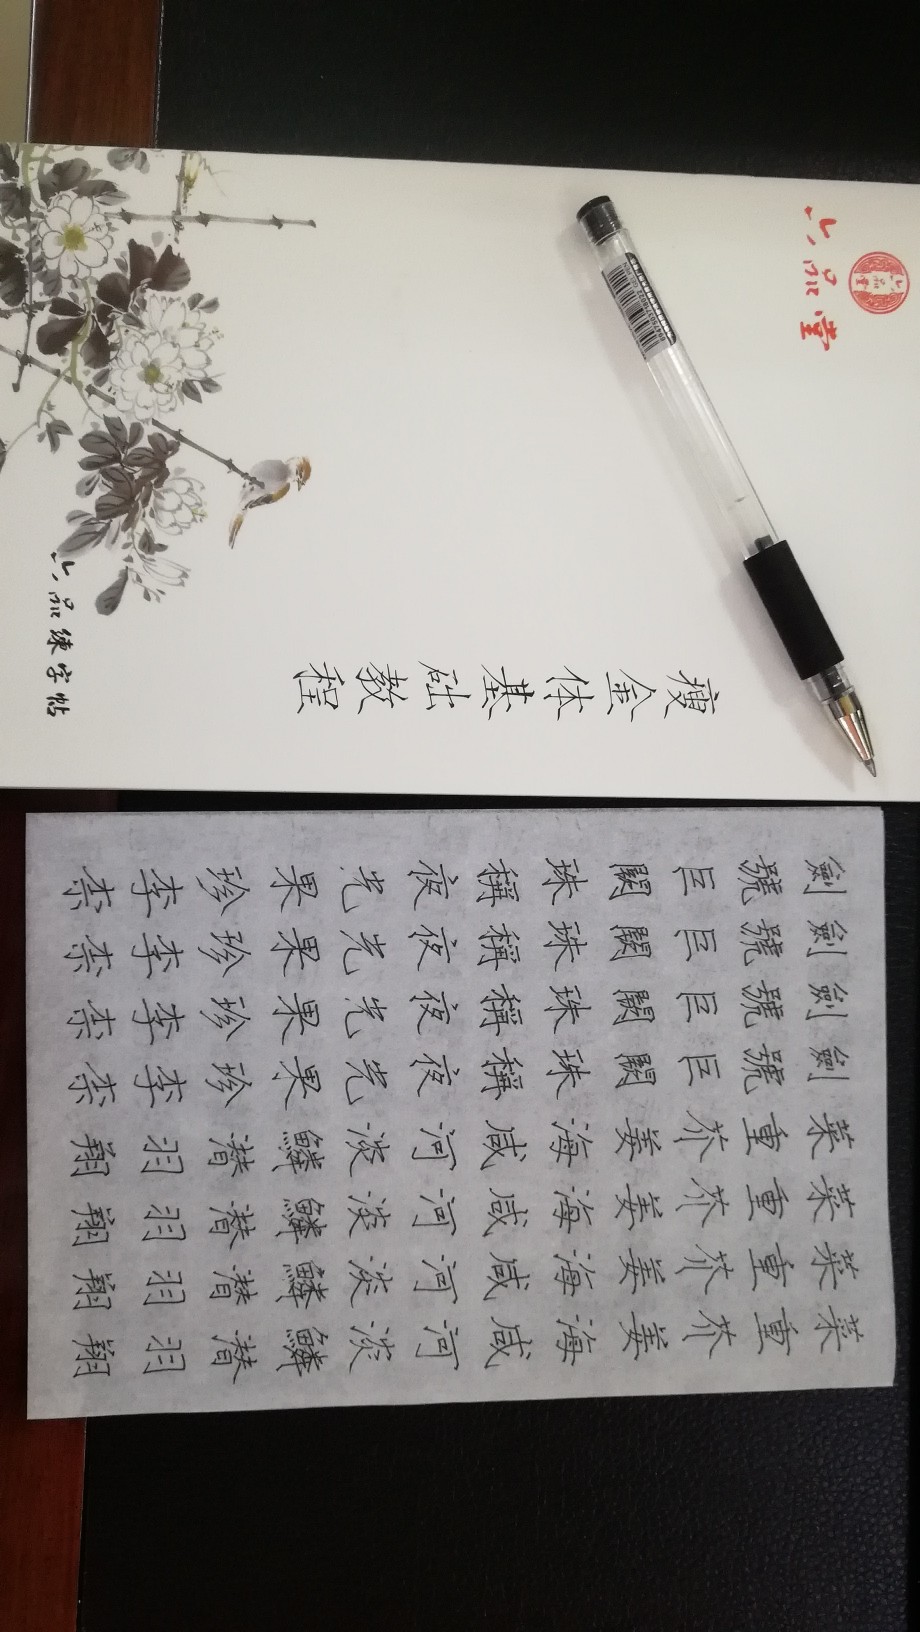 六品堂
六品堂
瘦金体基础教程
六品練字帖
劍號巨闕珠稱夜光果珍李柰
劍號巨闕珠稱夜光果珍李柰
劍號巨闕珠稱夜光果珍李柰
劍號巨闕珠稱夜光果珍李柰
菜重芥姜海咸河淡鱗潛羽翔
菜重芥姜海咸河淡鱗潛羽翔
菜重芥姜海咸河淡鱗潛羽翔
菜重芥姜海咸河淡鱗潛羽翔